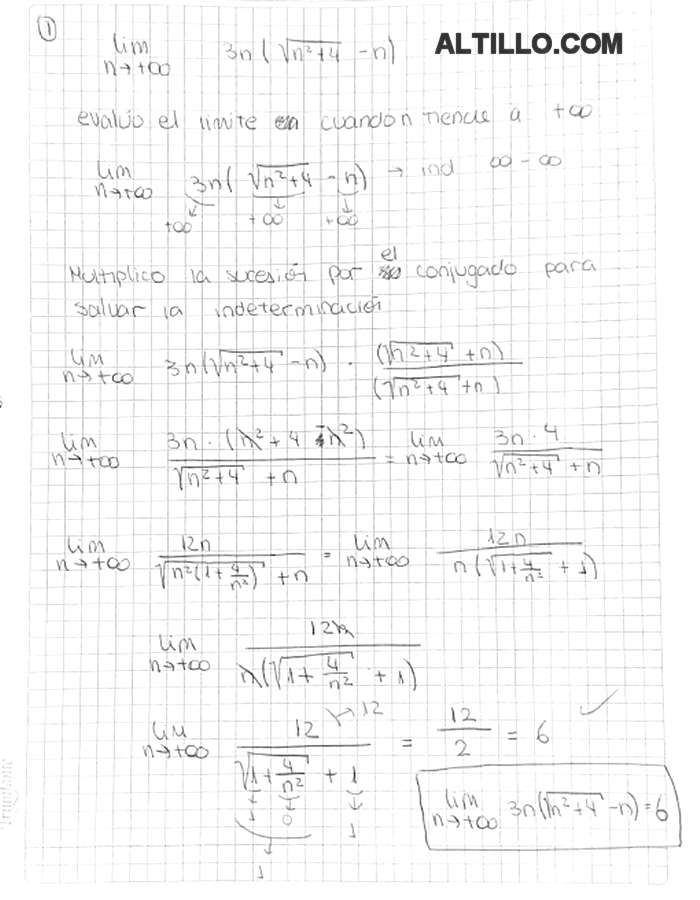 ①
lim n→+∞ 3n(√(n²+4) - n) ALTILLO.COM
evalúo el límite cuando n tiende a +∞
lim n→+∞ 3n(√(n²+4) - n) → ind ∞ - ∞
+∞ +∞ +∞
Multiplico la sucesión por el conjugado para
salvar la indeterminación
lim n→+∞ 3n(√(n²+4) - n) · (√(n²+4) + n)/(√(n²+4) + n)
lim n→+∞ 3n·(n²+4-n²)/(√(n²+4) + n) = lim n→+∞ 3n·4/(√(n²+4) + n)
lim n→+∞ 12n/(√(n²(1+4/n²)) + n) = lim n→+∞ 12n/(n(√(1+4/n²) + 1))
lim n→+∞ 12n/(n(√(1+4/n²) + 1))
lim n→+∞ 12/(√(1+4/n²) + 1) = 12/2 = 6 ✓
→12
1 0 1
1
lim n→+∞ 3n(√(n²+4) - n) = 6